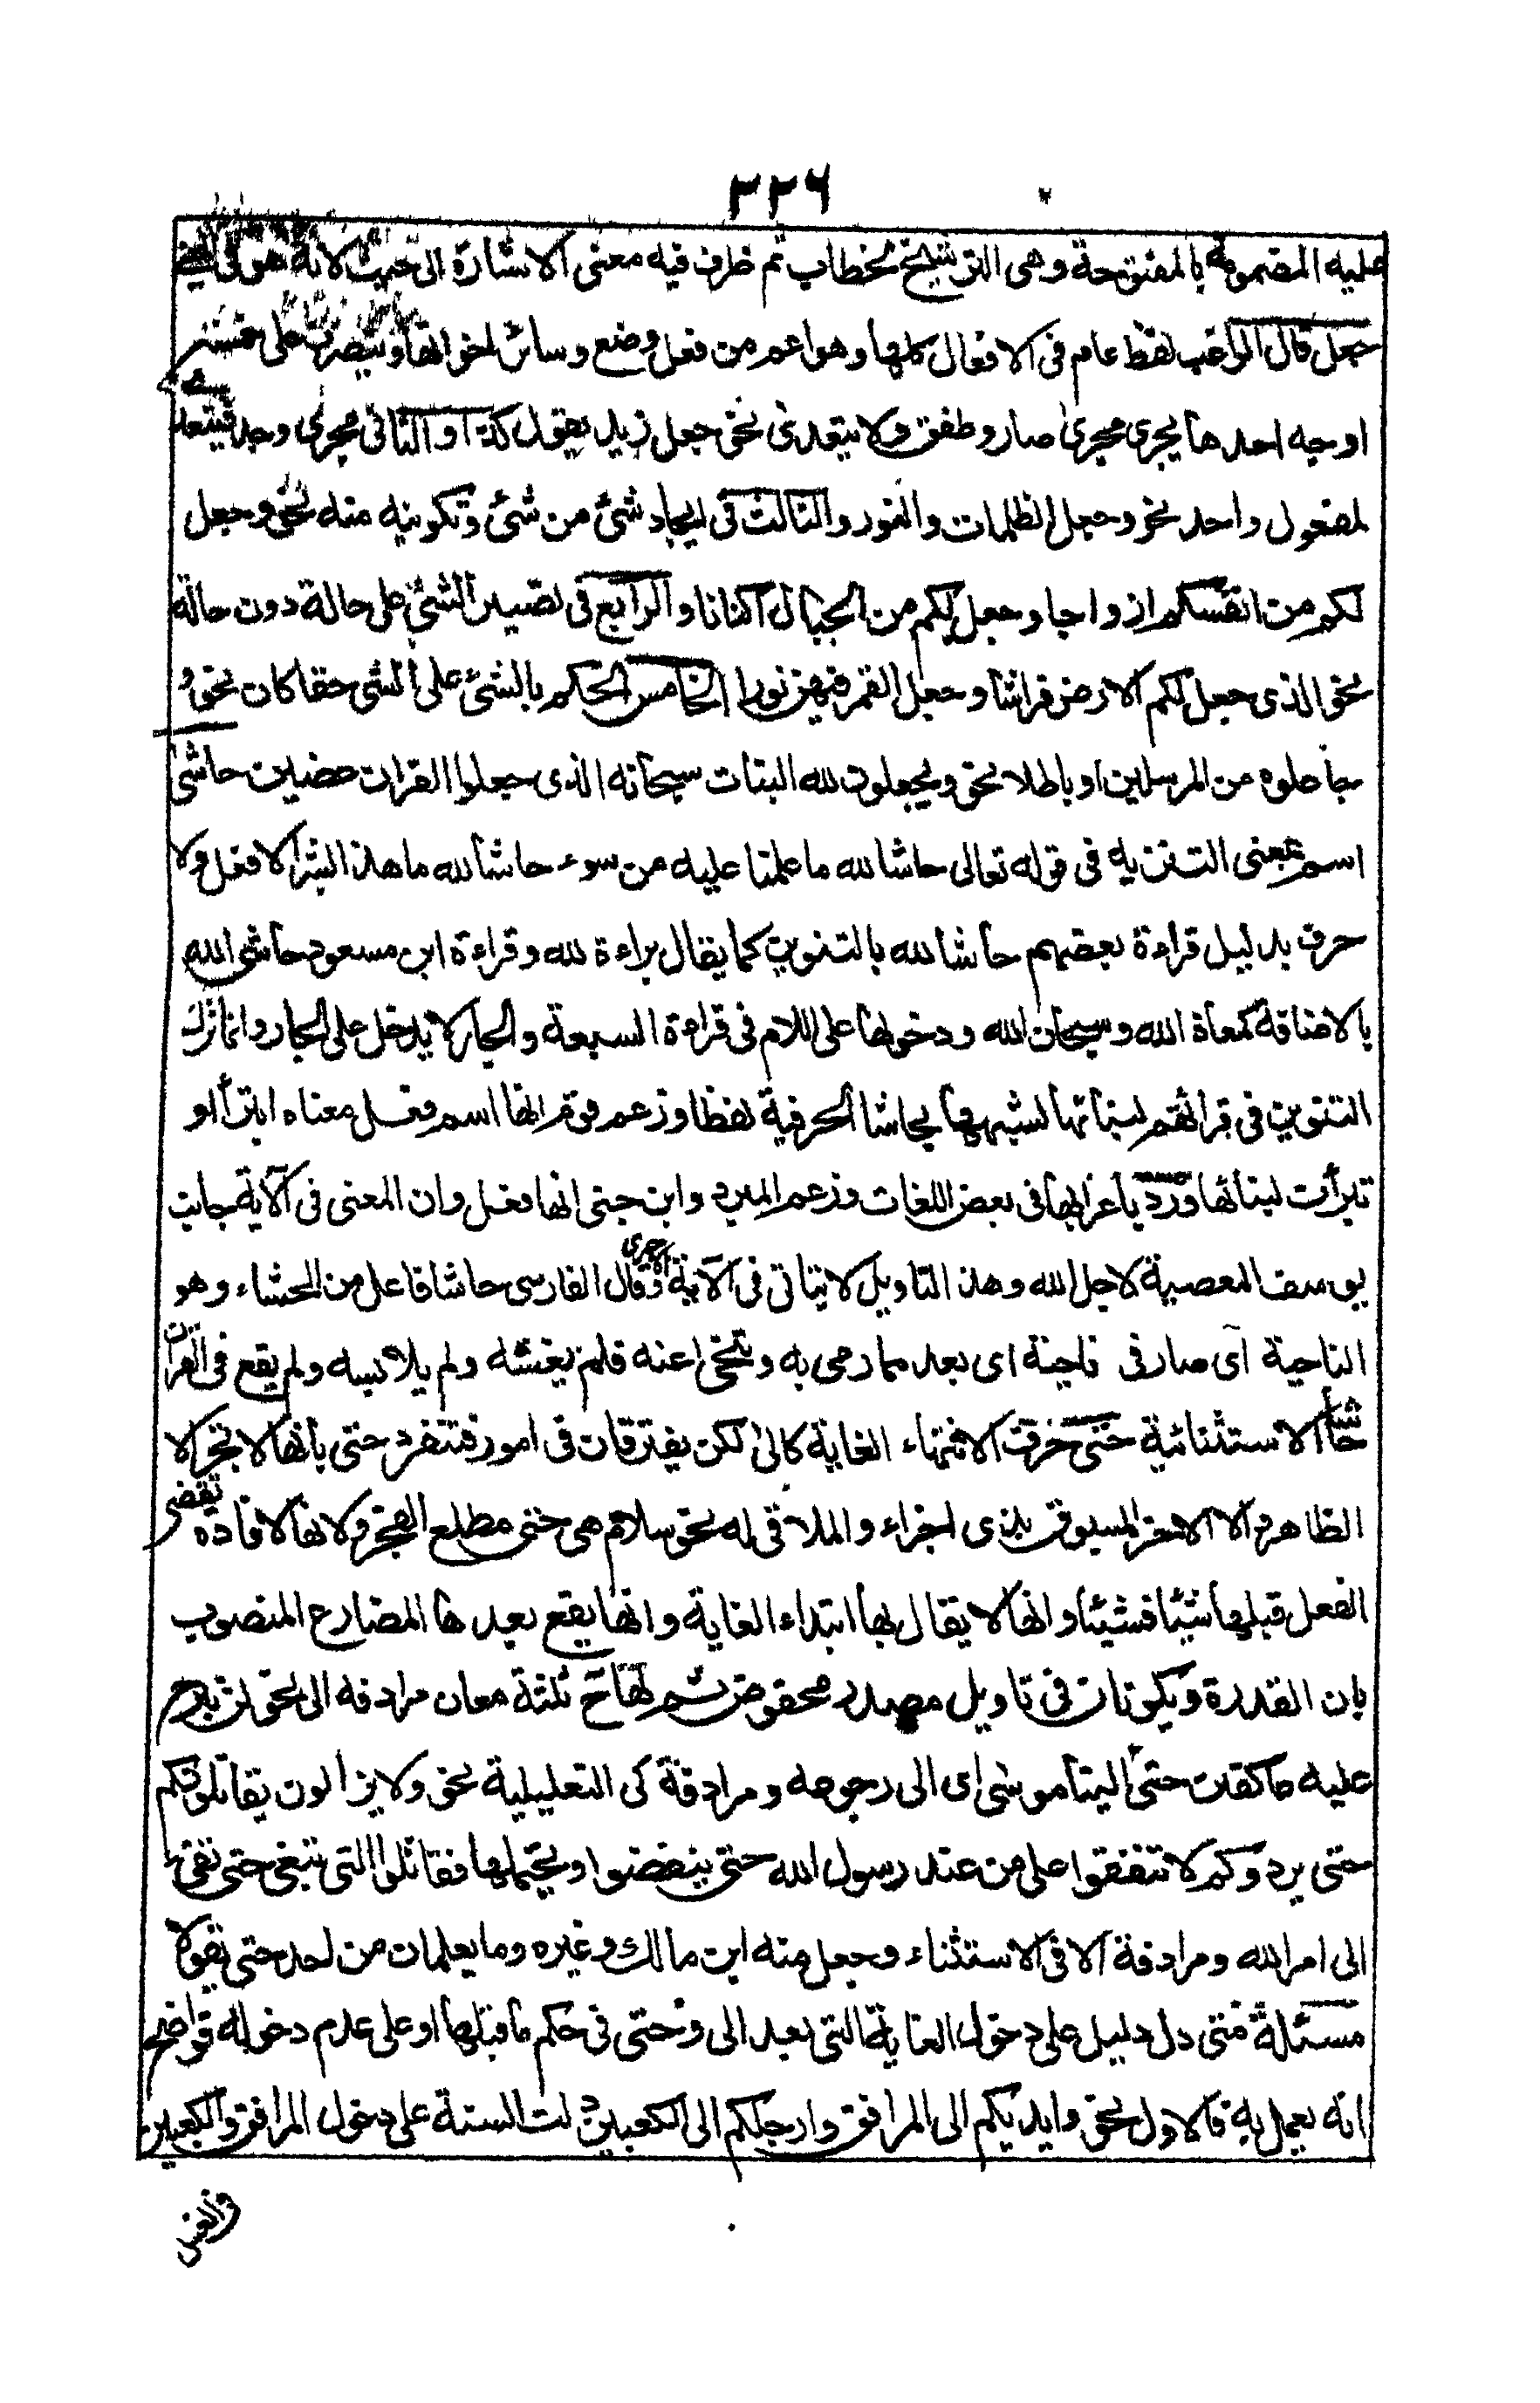 ٣٢٦
عليه المضمومة بالمفتوحة وهى الترشيح لخطاب ثم ظرف فيه معنى الاشارة الى حيث لانه هو فى المعنى
جعل قال الراغب لفظ عام فى الافعال كلها وهو اعم من فعل وضع وسائر اخواتها ويتصرف على خمسة
اوجه احدها يجرى مجرى صار وطفق ولا يتعدى نحو جعل زيد يقول كذا والثانى مجرى وجد فيتعد
لمفعول واحد نحو وجعل الظلمات والنور والثالث فى ايجاد شئ من شئ وتكوينه منه نحو وجعل
لكم من انفسكم ازواجا وجعل لكم من الجبال اكنانا والرابع فى تصيير الشئ على حالة دون حالة
نحو الذى جعل لكم الارض فراشا وجعل القمر فيهن نورا الخامس الحكم بالشئ على الشئ حقا كان نحو و
جاعلوه من المرسلين او باطلا نحو ويجعلون لله البنات سبحانه الذى جعلوا القران عضين حاشى
اسم بمعنى التنزيه فى قوله تعالى حاشا لله ما علمنا عليه من سوء حاشا لله ما هذا البشرا لا فعل ولا
حرف بدليل قراءة بعضهم حاشا لله بالتنوين كما يقال براءة لله وقراءة ابن مسعود حاشى الله
بالاضافة كمعاذ الله وسبحان الله ودخولها على اللام فى قراءة السبعة والجار لا يدخل على الجار وانما ترك
التنوين فى قراءتهم لبنائها لشبهها بحاشا الحرفية لفظا وزعم قوم انها اسم فعل معناه ابترأ او
تبرأت لبنائها ورد باعرابها فى بعض اللغات وزعم المبرد وابن جنى انها فعل وان المعنى فى الآية جانب
يوسف المعصية لاجل الله وهذا التاويل لا يتاتى فى الآية الاخرى وقال الفارسى حاشا فاعل من الحشاء وهو
الناحية اى صار فى ناحية اى بعد مما رمى به وتنحى عنه فلم يغشه ولم يلابسه ولم يقع فى القران
حاشا الاستثنائية حتى حرف لانتهاء الغاية كالى لكن يفترقان فى امور فتنفرد حتى بانها لا تجر الا
الظاهر والا الاخر المسبوق بذى اجزاء والملاقى له نحو سلام هى حتى مطلع الفجر ولانها لافادة تقضى
الفعل قبلها شيئا فشيئا وانها لا يقال بها ابتداء الغاية وانها يقع بعدها المضارع المنصوب
بان المقدرة ويكونان فى تاويل مصدر مخفوض ثم لها ح ثلثة معان مرادفه الى نحو لن نبرح
عليه عاكفين حتى الينا موسى اى الى رجوعه ومرادفة كى التعليلية نحو ولا يزالون يقاتلونكم
حتى يردوكم لا تنفقوا على من عند رسول الله حتى ينفضوا ويحتملها فقاتلوا التى تبغى حتى تفئ
الى امر الله ومرادفة الا فى الاستثناء وجعل منه ابن مالك وغيره وما يعلمان من احد حتى يقولا
مسئلة متى دل دليل على دخول الغاية التى بعد الى وحتى فى حكم ما قبلها او على عدم دخوله فواضح
انه يعمل به فالاول نحو وايديكم الى المرافق وارجلكم الى الكعبين دلت السنة على دخول المرافق والكعبين